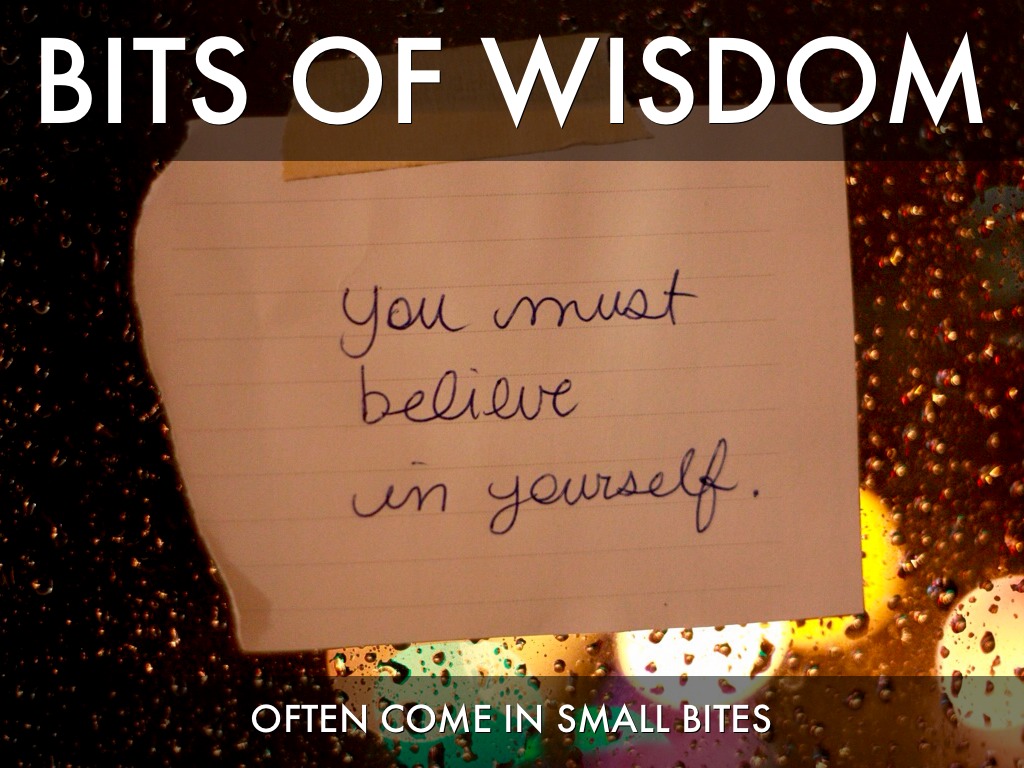 BITS OF WISDOM
you must
believe
in yourself.
OFTEN COME IN SMALL BITES